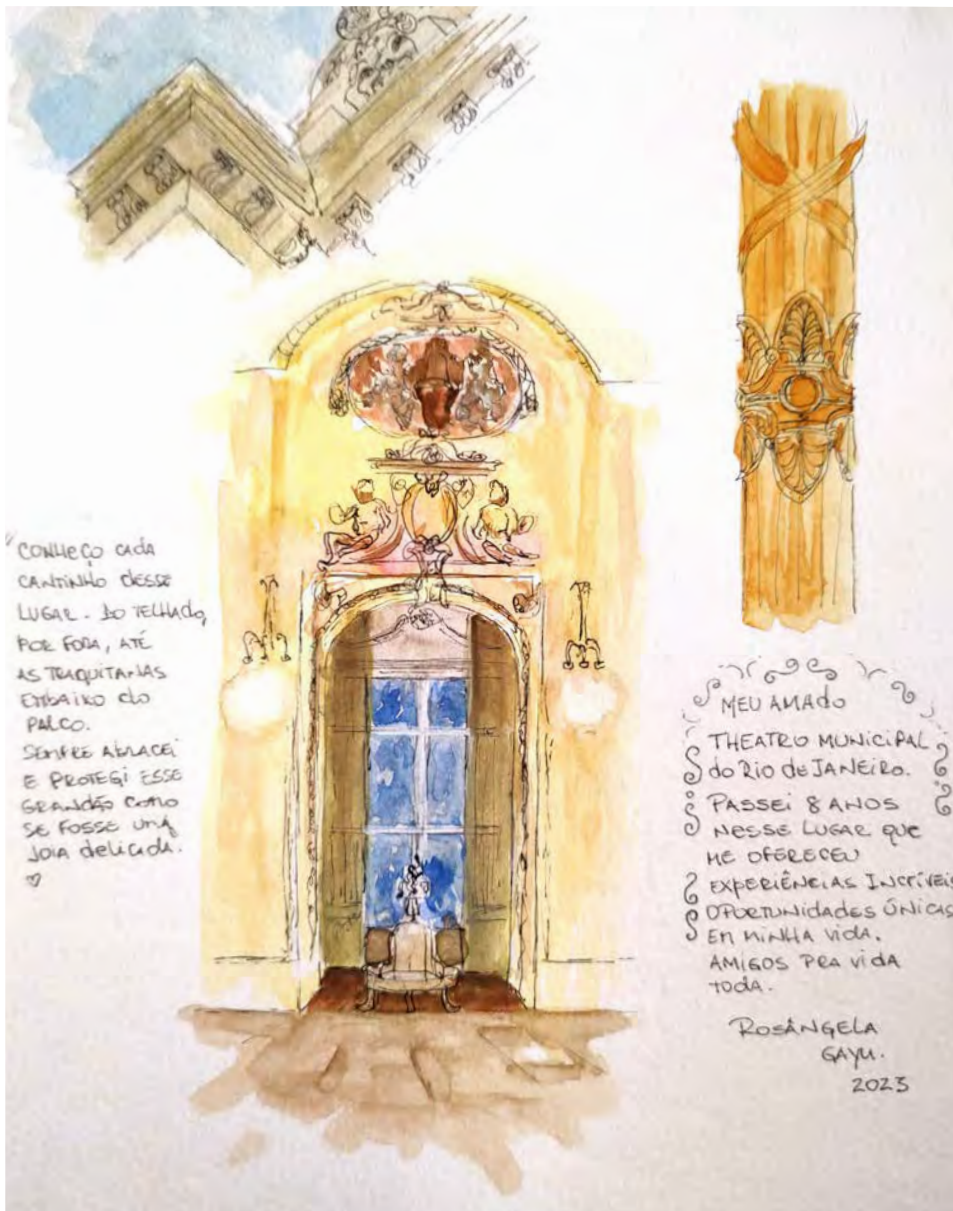 CONHEÇO CADA
CANTINHO DESSE
LUGAR. DO TELHADO,
POR FORA, ATÉ
AS TRAQUITANAS
EMBAIXO DO
PALCO.
SEMPRE ABRACEI
E PROTEGI ESSE
GRANDÃO COMO
SE FOSSE UMA
JOIA DELICADA.
♡
MEU AMADO
THEATRO MUNICIPAL
DO RIO DE JANEIRO.
PASSEI 8 ANOS
NESSE LUGAR QUE
ME OFERECEU
EXPERIÊNCIAS INCRÍVEIS
OPORTUNIDADES ÚNICAS
EM MINHA VIDA.
AMIGOS PRA VIDA
TODA.
ROSÂNGELA
GAYU.
2023